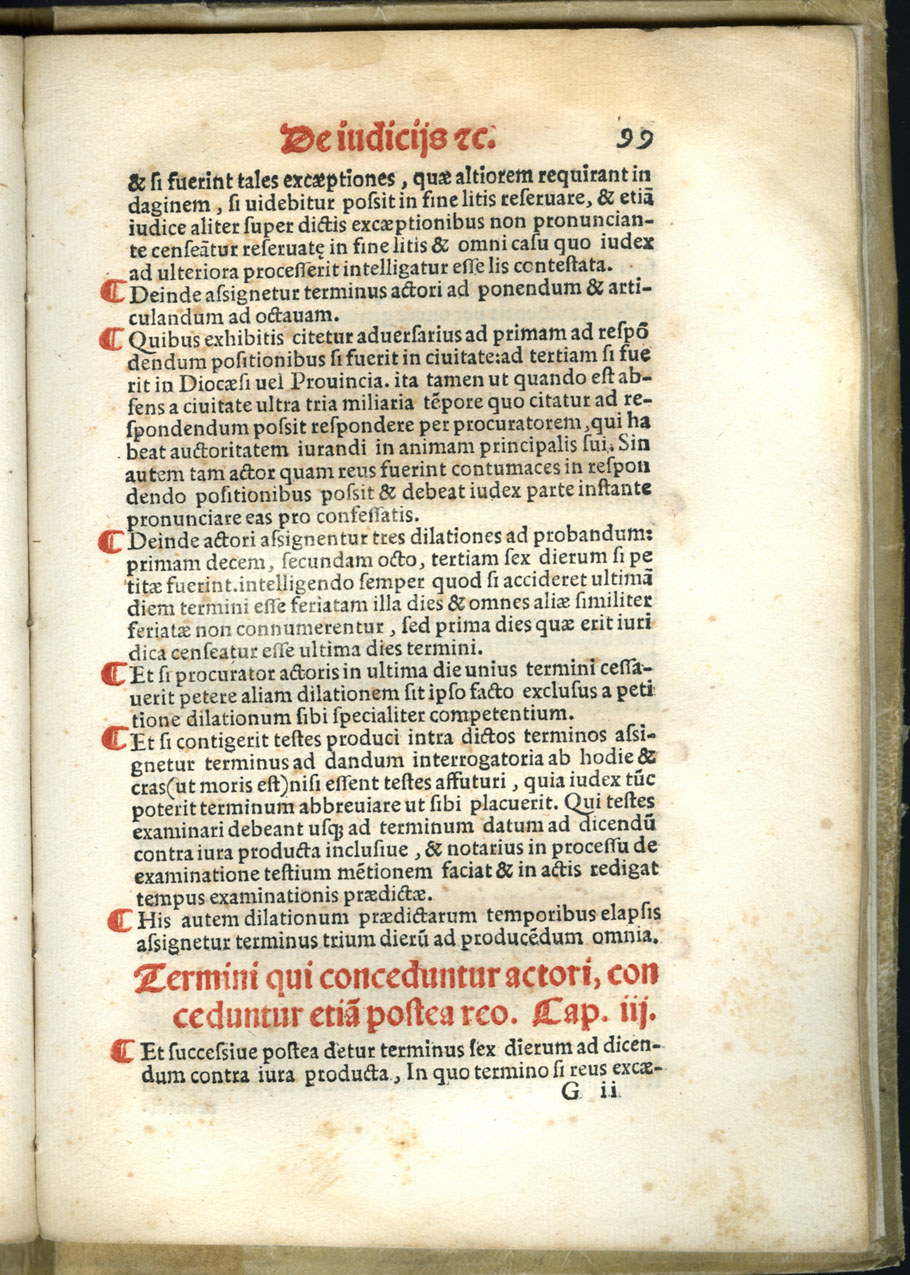 De iudicijs ⁊c. 99
& ſi fuerint tales excæptiones, quæ altiorem requirant in
daginem, ſi uidebitur poſsit in fine litis reſeruare, & etiã
iudice aliter ſuper dictis excæptionibus non pronuncian-
te cenſeãtur reſeruatę in fine litis & omni caſu quo iudex
ad ulteriora proceſſerit intelligatur eſſe lis conteſtata.
¶ Deinde aſsignetur terminus actori ad ponendum & arti-
culandum ad octauam.
¶ Quibus exhibitis citetur aduerſarius ad primam ad reſpõ
dendum poſitionibus ſi fuerit in ciuitate:ad tertiam ſi fue
rit in Diocæſi uel Prouincia. ita tamen ut quando eſt ab-
ſens a ciuitate ultra tria miliaria tẽpore quo citatur ad re-
ſpondendum poſsit reſpondere per procuratorem,qui ha
beat auctoritatem iurandi in animam principalis ſui. Sin
autem tam actor quam reus fuerint contumaces in reſpon
dendo poſitionibus poſsit & debeat iudex parte inſtante
pronunciare eas pro confeſſatis.
¶ Deinde actori aſsignentur tres dilationes ad probandum:
primam decem, ſecundam octo, tertiam ſex dierum ſi pe
titæ fuerint.intelligendo ſemper quod ſi accideret ultimã
diem termini eſſe feriatam illa dies & omnes aliæ ſimiliter
feriatæ non connumerentur, ſed prima dies quæ erit iuri
dica cenſeatur eſſe ultima dies termini.
¶ Et ſi procurator actoris in ultima die unius termini ceſſa-
uerit petere aliam dilationem ſit ipſo facto excluſus a peti
tione dilationum ſibi ſpecialiter competentium.
¶ Et ſi contigerit teſtes produci intra dictos terminos aſsi-
gnetur terminus ad dandum interrogatoria ab hodie &
cras(ut moris eſt)niſi eſſent teſtes affuturi, quia iudex tũc
poterit terminum abbreuiare ut ſibi placuerit. Qui teſtes
examinari debeant uſqꝫ ad terminum datum ad dicendũ
contra iura producta incluſiue, & notarius in proceſſu de
examinatione teſtium mẽtionem faciat & in actis redigat
tempus examinationis prædictæ.
¶ His autem dilationum prædictarum temporibus elapſis
aſsignetur terminus trium dierũ ad producẽdum omnia.
Termini qui conceduntur actori, con
ceduntur etiã poſtea reo. Cap. iij.
¶ Et ſucceſsiue poſtea detur terminus ſex dierum ad dicen-
dum contra iura producta, In quo termino ſi reus excæ-
G ii